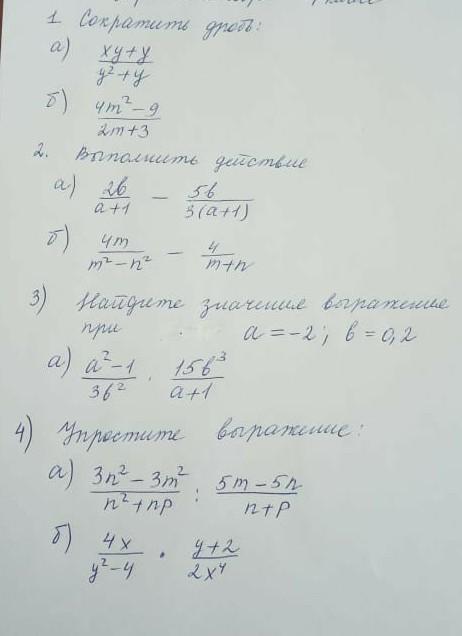 1. Сократить дробь:
а) (xy+y)/(y²+y)
б) (4m²-9)/(2m+3)
2. Выполнить действие
а) 2b/(a+1) - 5b/(3(a+1))
б) 4m/(m²-n²) - 4/(m+n)
3) Найдите значения выражение
при a=-2; b=0,2
а) (a²-1)/(3b²) · (15b³)/(a+1)
4) Упростите выражение:
а) (3n²-3m²)/(n²+np) : (5m-5n)/(n+p)
б) 4x/(y²-4) · (y+2)/(2x⁴)